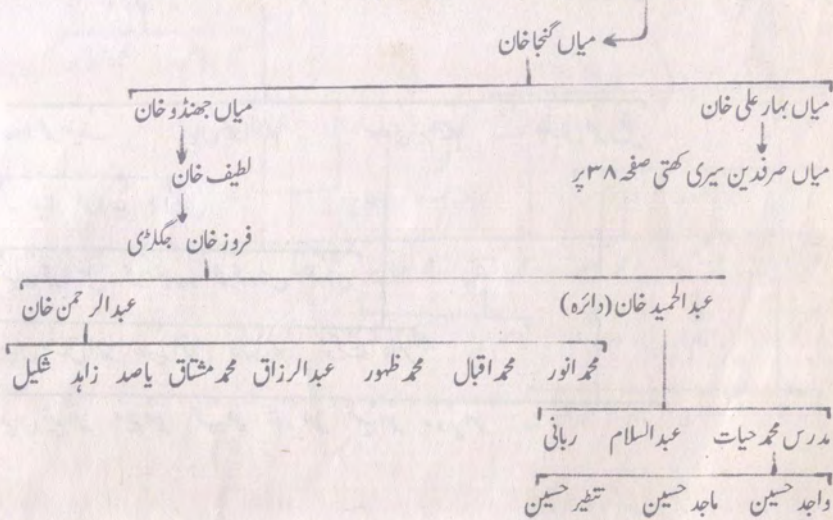 میاں گنجا خان
میاں بہار علی خان میاں جھنڈو خان
میاں صرفدین سیری کھتی صفحہ ۳۸ پر لطیف خان
فروز خان جگلڑی
عبدالحمید خان (دائرہ) عبدالرحمن خان
محمد انور محمد اقبال محمد ظہور عبدالرزاق محمد مشتاق یاصد زاہد شکیل
مدرس محمد حیات عبدالسلام ربانی
واجد حسین ماجد حسین تنظیر حسین